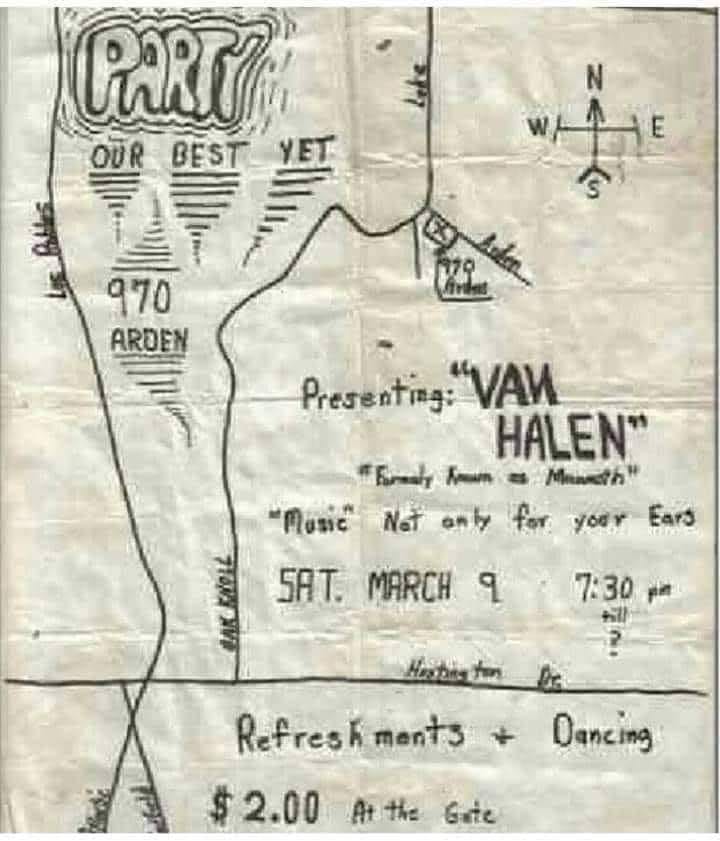 PARTY
OUR BEST YET
970
ARDEN
Lake
N
W E
S
Los Robles
Arden
X
970
Arden
Presenting: "VAN
HALEN"
"Formaly Known as Mammoth"
"Music" Not only for your Ears
SAT. MARCH 9 7:30 pm
till
?
OAK KNOLL
Huntington Dr.
Refreshments + Dancing
$2.00 At the Gate